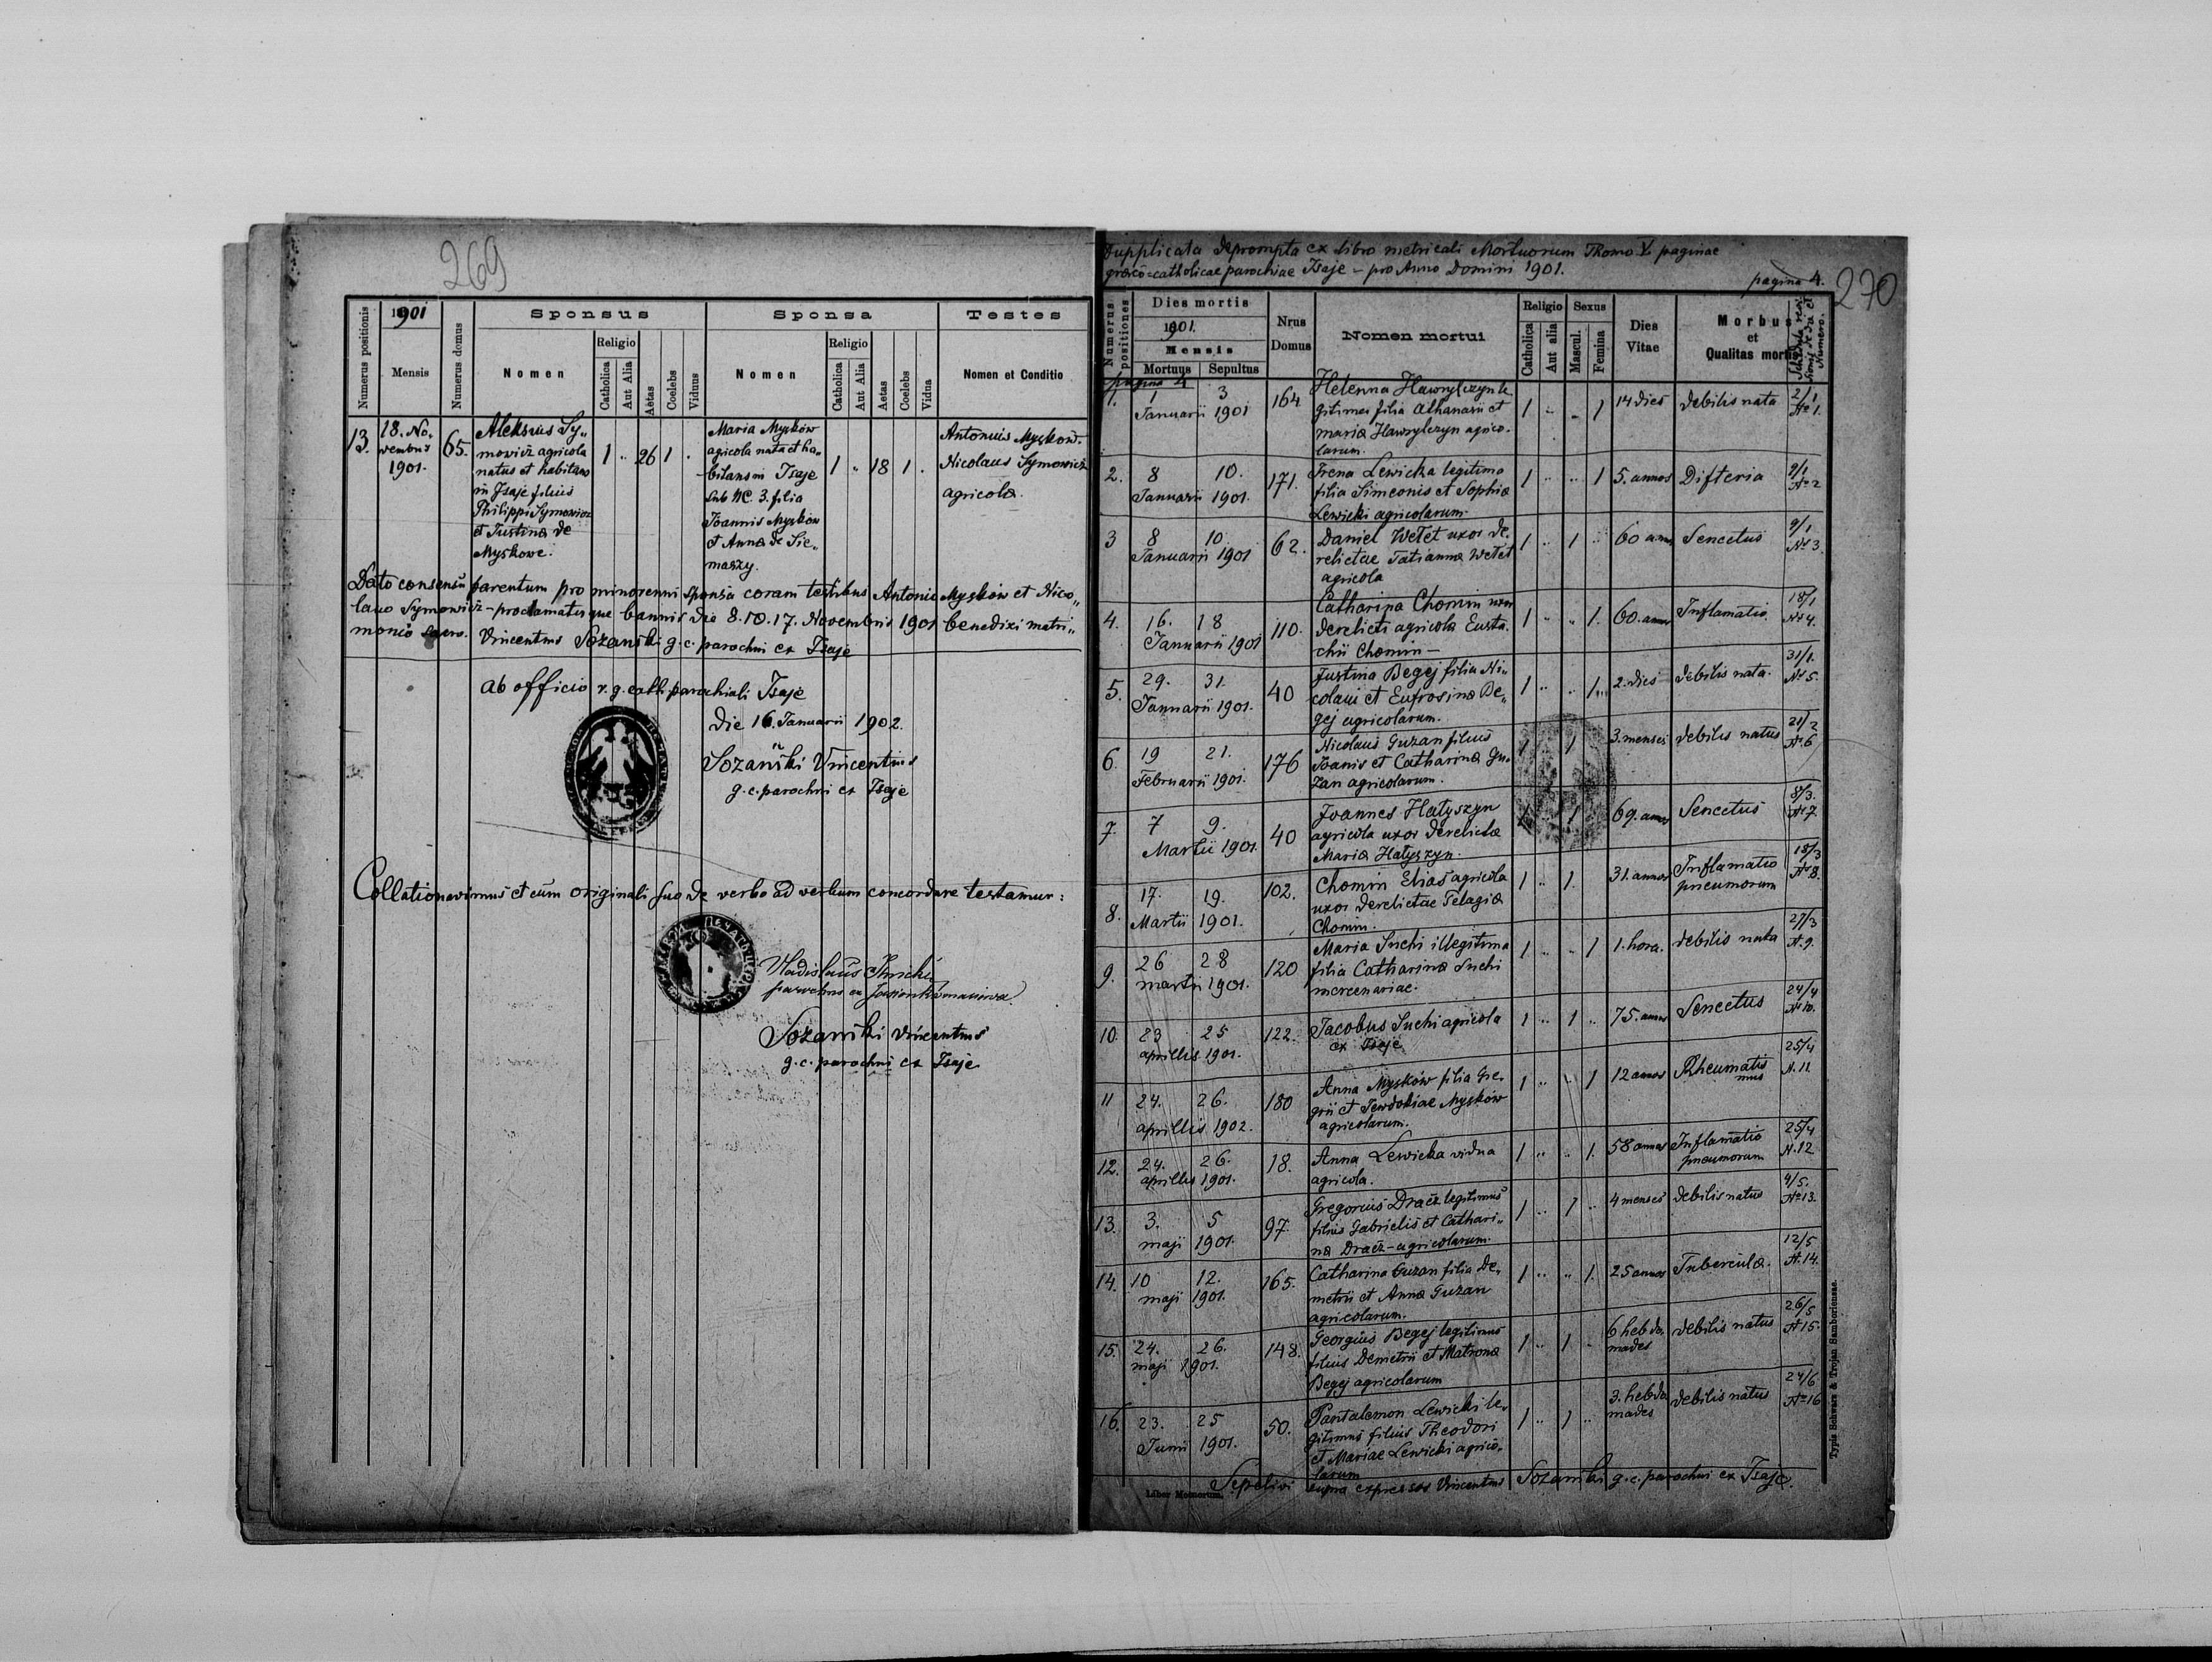 269
Numerus positionis
1901
Mensis
Numerus domus
Sponsus
Nomen
Religio
Catholica
Aut Alia
Aetas
Coelebs
Viduus
Sponsa
Nomen
Religio
Catholica
Aut Alia
Aetas
Coelebs
Vidua
Testes
Nomen et Conditio
13.
18. No„
vembris
1901.
65.
Aleksius Sy„
mowicz agricola
natus et habitans
in Isaje filius
Philippi Symowicz
et Justina de
Myskowe.
1 „ 26 1 .
Maria Myskow
agricola nata et ha„
bitans in Isaje
sub NC. 3. filia
Joannis Myskow
et Anna de Sie„
maszy.
1 „ 18 1 .
Antonius Myskow.
Nicolaus Symowicz
agricola.
Dato consensu parentum pro minorenni sponsa coram testibus Antonio Myskow et Nico„
lauo Symowicz - proclamatisque bannis die 8. 10. 17. Novembris 1901 benedixi matri„
monio sacro. Vincentius Sozański g. c. parochus ex Isaje
ab officio r. g. cath. parochiali Isaje
die 16. Januarii 1902.
Sozański Vincentius
g. c. parochus ex Isaje
Collationavimus et cum originali suo de verbo ad verbum concordare testamur:
Vladislaus
parochus ex
Sozański Vincentius
g. c. parochus ex Isaje
Dupplicata deprompta ex libro metricali Mortuorum Thomo V paginae
graeco-catholicae parochiae Isaje - pro Anno Domini 1901.
pagina 4.
270
Numerus positiones
Dies mortis
1901.
Mensis
Mortuus
Sepultus
Nrus
Domus
Nomen mortui
Religio
Catholica
Aut alia
Sexus
Mascul.
Femina
Dies
Vitae
Morbus
et
Qualitas mortis
pagina 4
1. 1 3
Januarii 1901
164
Helenna Hawrylczyn le
gitima filia Athanasii et
maria Hawrylczyn agrico„
larum.
1 „ „ 1 14 dies debilis nata 2/1
No 1.
2. 8 10.
Januarii 1901.
171.
Irena Lewicka legitima
filia Simeonis et Sophia
Lewicki agricolarum.
1 „ „ 1 5. annos Difteria 9/1
No 2
3 8 10.
Januarii 1901
62.
Daniel Wetet uxor de„
relictae Tatianna Wetet
agricola
1 „ 1 „ 60 annos Senectus 9/1
No 3.
4. 16. 18
Januarii 1901
110.
Catharina Chomin uxor
derelicti agricola Eusta„
chii Chomin -
1 „ „ 1. 60. annos Inflamatio. 18/1
No 4.
5. 29. 31.
Januarii 1901.
40
Justina Begej filia Ni„
colaui et Eufrosina Be„
gej agricolarum.
1 „ „ 1 2. dies debilis nata. 31/1.
No 5.
6. 19 21.
Februarii 1901.
176
Nicolaus Guzan filius
Joanis et Catharina Gu„
zan agricolarum.
1 1 3. menses debilis natus 21/2
No 6
7. 7 9.
Martii 1901.
40
Joannes Hatyszyn
agricola uxor derelicta
Maria Hatyszyn.
1 1 69. annos Senectus 8/3.
No 7.
8. 17. 19.
Martii 1901.
102.
Chomin Elias agricola
uxor derelictae Pelagia
Chomin.
1 „ 1. 31. annos Inflamatio
pneumorum 18/3
No 8.
9. 26 28
martii 1901.
120
Maria Suchi illegitima
filia Catharina Suchi
mercenariae.
1 „ „ 1 1. hora. debilis nata 27/3
N. 9.
10. 23 25
aprillis 1901.
122.
Jacobus Suchi agricola
ex Isaje
1 „ 1 „ 75. annos Senectus 24/4
No 10.
11 24. 26.
aprillis 1902.
180
Anna Myskow filia Gre„
grii et Jewdokiae Myskow
agricolarum.
1 „ „ 1 12 annos Rheumatis
mus 25/4
N. 11.
12. 24. 26.
aprillis 1901.
18.
Anna Lewicka vidua
agricola.
1 „ „ 1. 58 annos Inflamatio
pneumorum 25/4
N. 12
13. 3. 5
maji 1901.
97.
Gregorius Dracz legitimus
filius Gabrielis et Cathari„
na Dracz - agricolarum.
1 „ 1 „ 4 menses debilis natus 4/5.
No 13.
14. 10 12.
maji 1901.
165.
Catharina Guzan filia De„
metrii et Anna Guzan
agricolarum.
1 „ „ 1. 25 annos Tubercula. 12/5
N. 14.
15. 24. 26.
maji 1901.
148.
Georgius Begej legitimus
filius Demetrii et Matrona
Begej agricolarum
1 „ 1 „ 6 hebdo„
mades debilis natus 26/5
N 15.
16. 23. 25
Junii 1901.
50.
Pantalemon Lewicki le„
gitimus filius Theodori
et Mariae Lewicki agrico„
larum
1 „ 1 „ 3. hebdo
mades debilis natus 24/6
No 16
Sepelivi supra expressos Vincentius Sozański g. c. parochus ex Isaje.
Liber Mortuorum.
Typis Schwarz & Trojan Samboriensae.